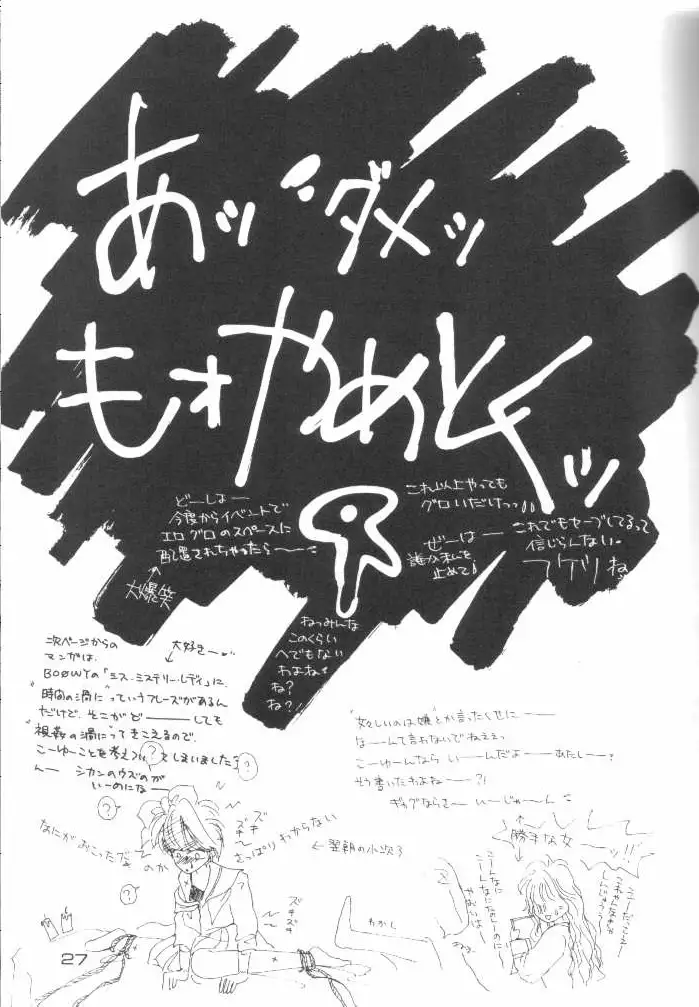 あッ ダメッ
もオやめとくッ
どーしよー
今度からイベントで
エログロのスペースに
配置されちゃったら〜〜
大爆笑
これ以上やっても
グロいだけっっ
ぜーはー
誰か私を
止めて
これでもセーブしてるって
信じらんない。
フケツね
ねっみんな
このくらい
へでもない
わよね
ね?
ね?!
次ページからの
マンガは、
大好きー
BOØWYの「ミス・ミステリー・レディ」に、
"時間の渦に"っていうフレーズがあるん
だけど、そこがどーーーしても
視姦の渦にってきこえるので、
こーゆーことを考えついてしまいました?
んー シカンのウズのが
いーのになー
"女々しいのは嫌"とか言ったくせにーーー
なーーんて言わないでねェェっ
こーゆーんなら いーんだよーーあたしーー?
そう書いたわよねーー?!
ギャグならさー いーじゃーん
勝手な女
ーッ!!
なにが おこったズキ のか
ズキ
ズキ
さっぱりわからない
← 翌朝の小次ろ
ズキズキ
わかし
27